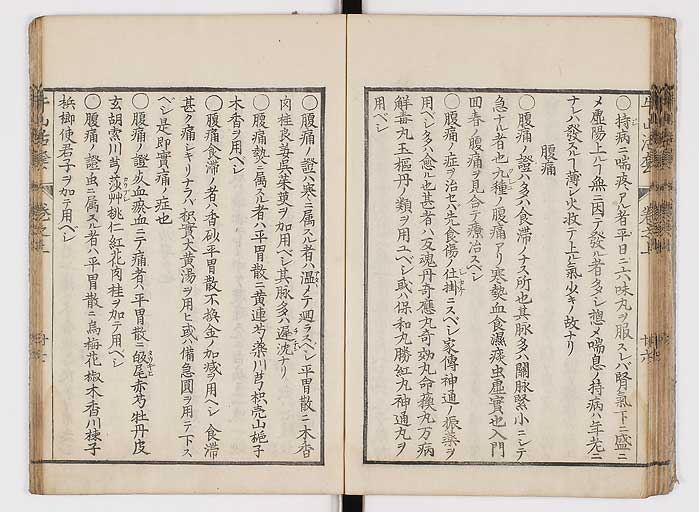 ○持病ニ喘疼アル者平日ニ六味丸ヲ服スレバ腎氣下ニ盛ニ
メ虚陽上ルフ無ニ因テ發ル者多シ惣メ喘息ノ持病ハ年老ニ
ナレハ發スルフ薄シ火救テ上ル氣少キノ故ナリ
腹痛
○腹痛ノ證ハ多ハ食滞ノナス所也其脈多ハ關脉緊小ニシテ
急ナル者也九種ノ腹痛アリ寒熱血食濕痰虫虚實也入門
回春ノ腹痛ヲ見合テ療治スベシ
○腹痛ノ症ヲ治セバ先食傷ノ仕掛ニスベシ家傳神通ノ振藥ヲ
用ベシ多ハ愈ル也甚者ハ反魂丹奇應丸奇効丸命蘓丸万病
解毒丸玉樞丹ノ類ヲ用ユベシ或ハ保和丸勝紅丸神通丸ヲ
用ベシ
○腹痛ノ證ハ寒ニ属スル者ハ温メテ廻ラスベシ平胃散ニ木香
肉桂良姜呉茱萸ヲ加用ベシ其脉多ハ遲沈ナリ
○腹痛熱ニ属スル者ハ平胃散ニ黄連芍藥川芎枳壳山梔子
木香ヲ用ベシ
○腹痛食滞ノ者ハ香砂平胃散不換金ノ加减ヲ用ベシ食滞
甚ク痛シキリナラハ枳實大黄湯ヲ用ヒ或ハ備急圓ヲ用テ下ス
ベシ是即實痛ノ症也
○腹痛ノ證死血瘀血ニテ痛者ハ平胃散ニ皈尾赤芍牡丹皮
玄胡索川芎莎艸桃仁紅花肉桂ヲ加テ用ベシ
○腹痛ノ證虫ニ属スル者ハ平胃散ニ烏梅花椒木香川楝子
梹榔使君子ヲ加テ用ベシ